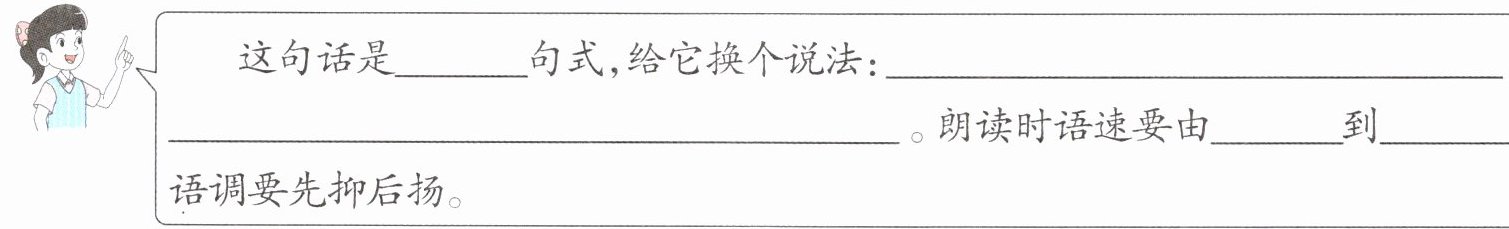 这句话是______句式,给它换个说法:______________________________
____________________________________。朗读时语速要由______到______
语调要先抑后扬。